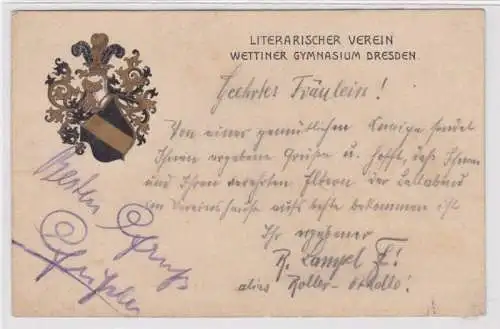 LITERARISCHER VEREIN
WETTINER GYMNASIUM DRESDEN.
Geehrtes Fräulein!
Von einer gemütlichen Kneipe sendet
Ihnen ergebene Grüße u. hofft, daß Ihnen
und Ihren verehrten Eltern der Ballabend
im Vereinshause aufs beste bekommen ist
Ihr ergebener
R. Lampel
alias Roller-
Besten Gruß